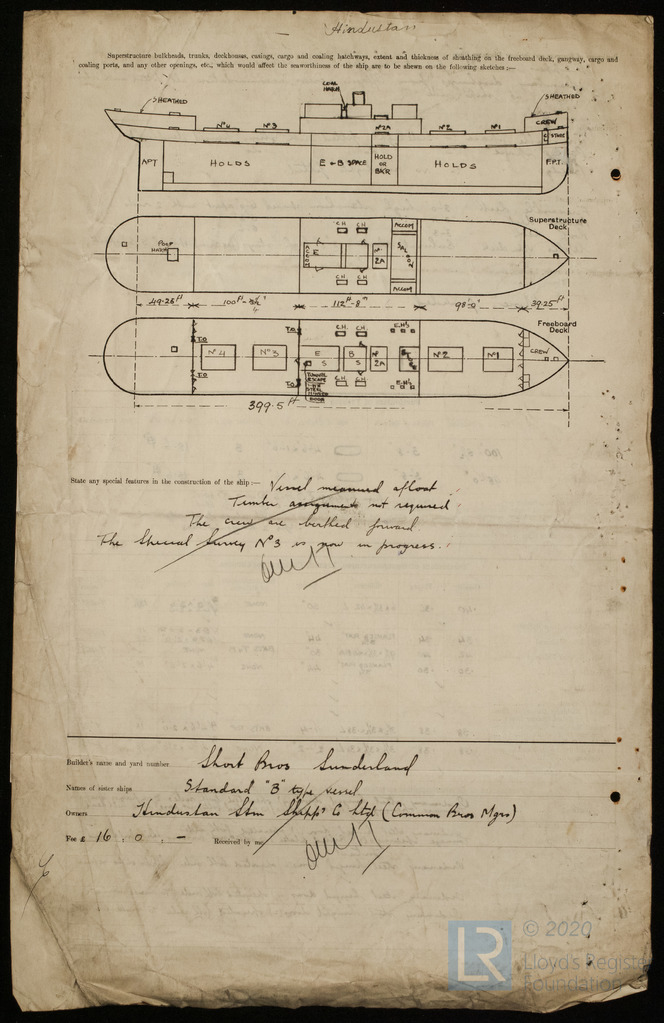 Hindustan
Superstructure bulkheads, trunks, deckhouses, casings, cargo and coaling hatchways, extent and thickness of sheathing on the freeboard deck, gangway, cargo and
coaling ports, and any other openings, etc., which would affect the seaworthiness of the ship are to be shewn on the following sketches:—
COAL
HATCH
SHEATHED
SHEATHED
CREW
Nº4 Nº3 Nº2A Nº2 Nº1
STORE
APT HOLDS E & B SPACE HOLD OR BKR HOLDS F.P.T.
Superstructure
Deck
POOP
HATCH
C.H. C.H.
ACCOM
E
Nº
2A
C.H. C.H.
ACCOM
49·25 ft 100 ft 112 ft - 8" 98'-0" 39·25 ft
Freeboard
Deck
T.O. T.O. C.H. C.H. E.H's
Nº4 Nº3 E S B S Nº 2A Nº2 Nº1 CREW
T.O. T.O. C.H. C.H. E.H's
TUNNEL
ESCAPE
STEEL
HINGED
DOOR
399·5 ft
State any special features in the construction of the ship:— Vessel measured afloat.
Timber assignment not required.
The crew are berthed forward
The Special Survey Nº3 is now in progress.
Builder's name and yard number Short Bros Sunderland
Names of sister ships Standard "B" type vessel
Owners Hindustan Stm Shipps Co Ltd (Common Bros Mgrs)
Fee £ 16 . 0 . - Received by me
LR
© 2020
Lloyd's Register
Foundation